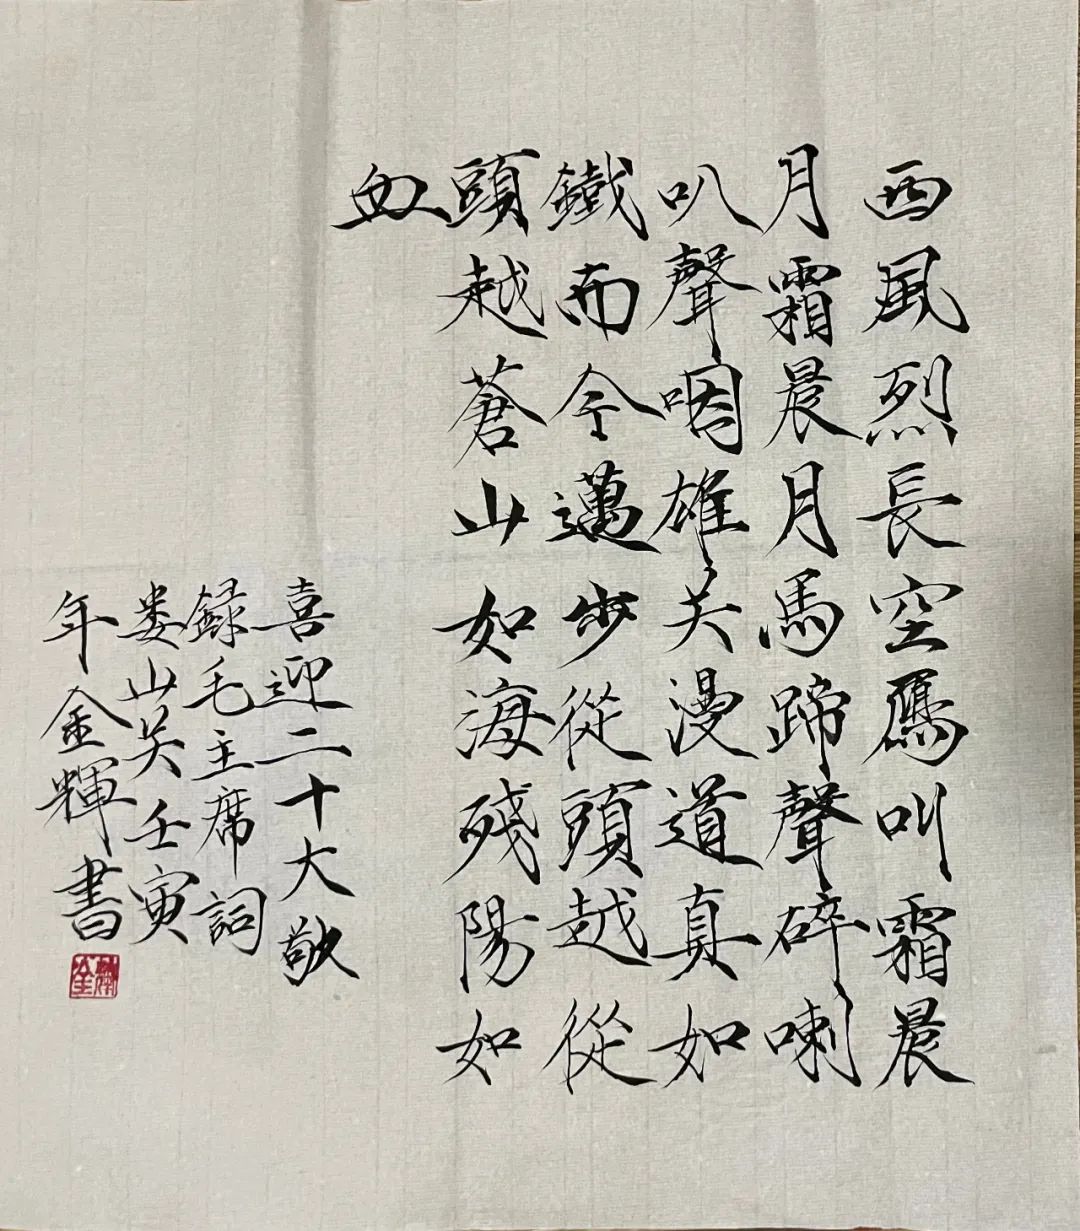 西風烈長空鴈叫霜晨
月霜晨月馬蹄聲碎喇
叭聲咽雄关漫道真如
鐵而今邁步從頭越從
頭越蒼山如海残陽如
血
喜迎二十大敬
録毛主席詞
娄山关壬寅
年金輝書